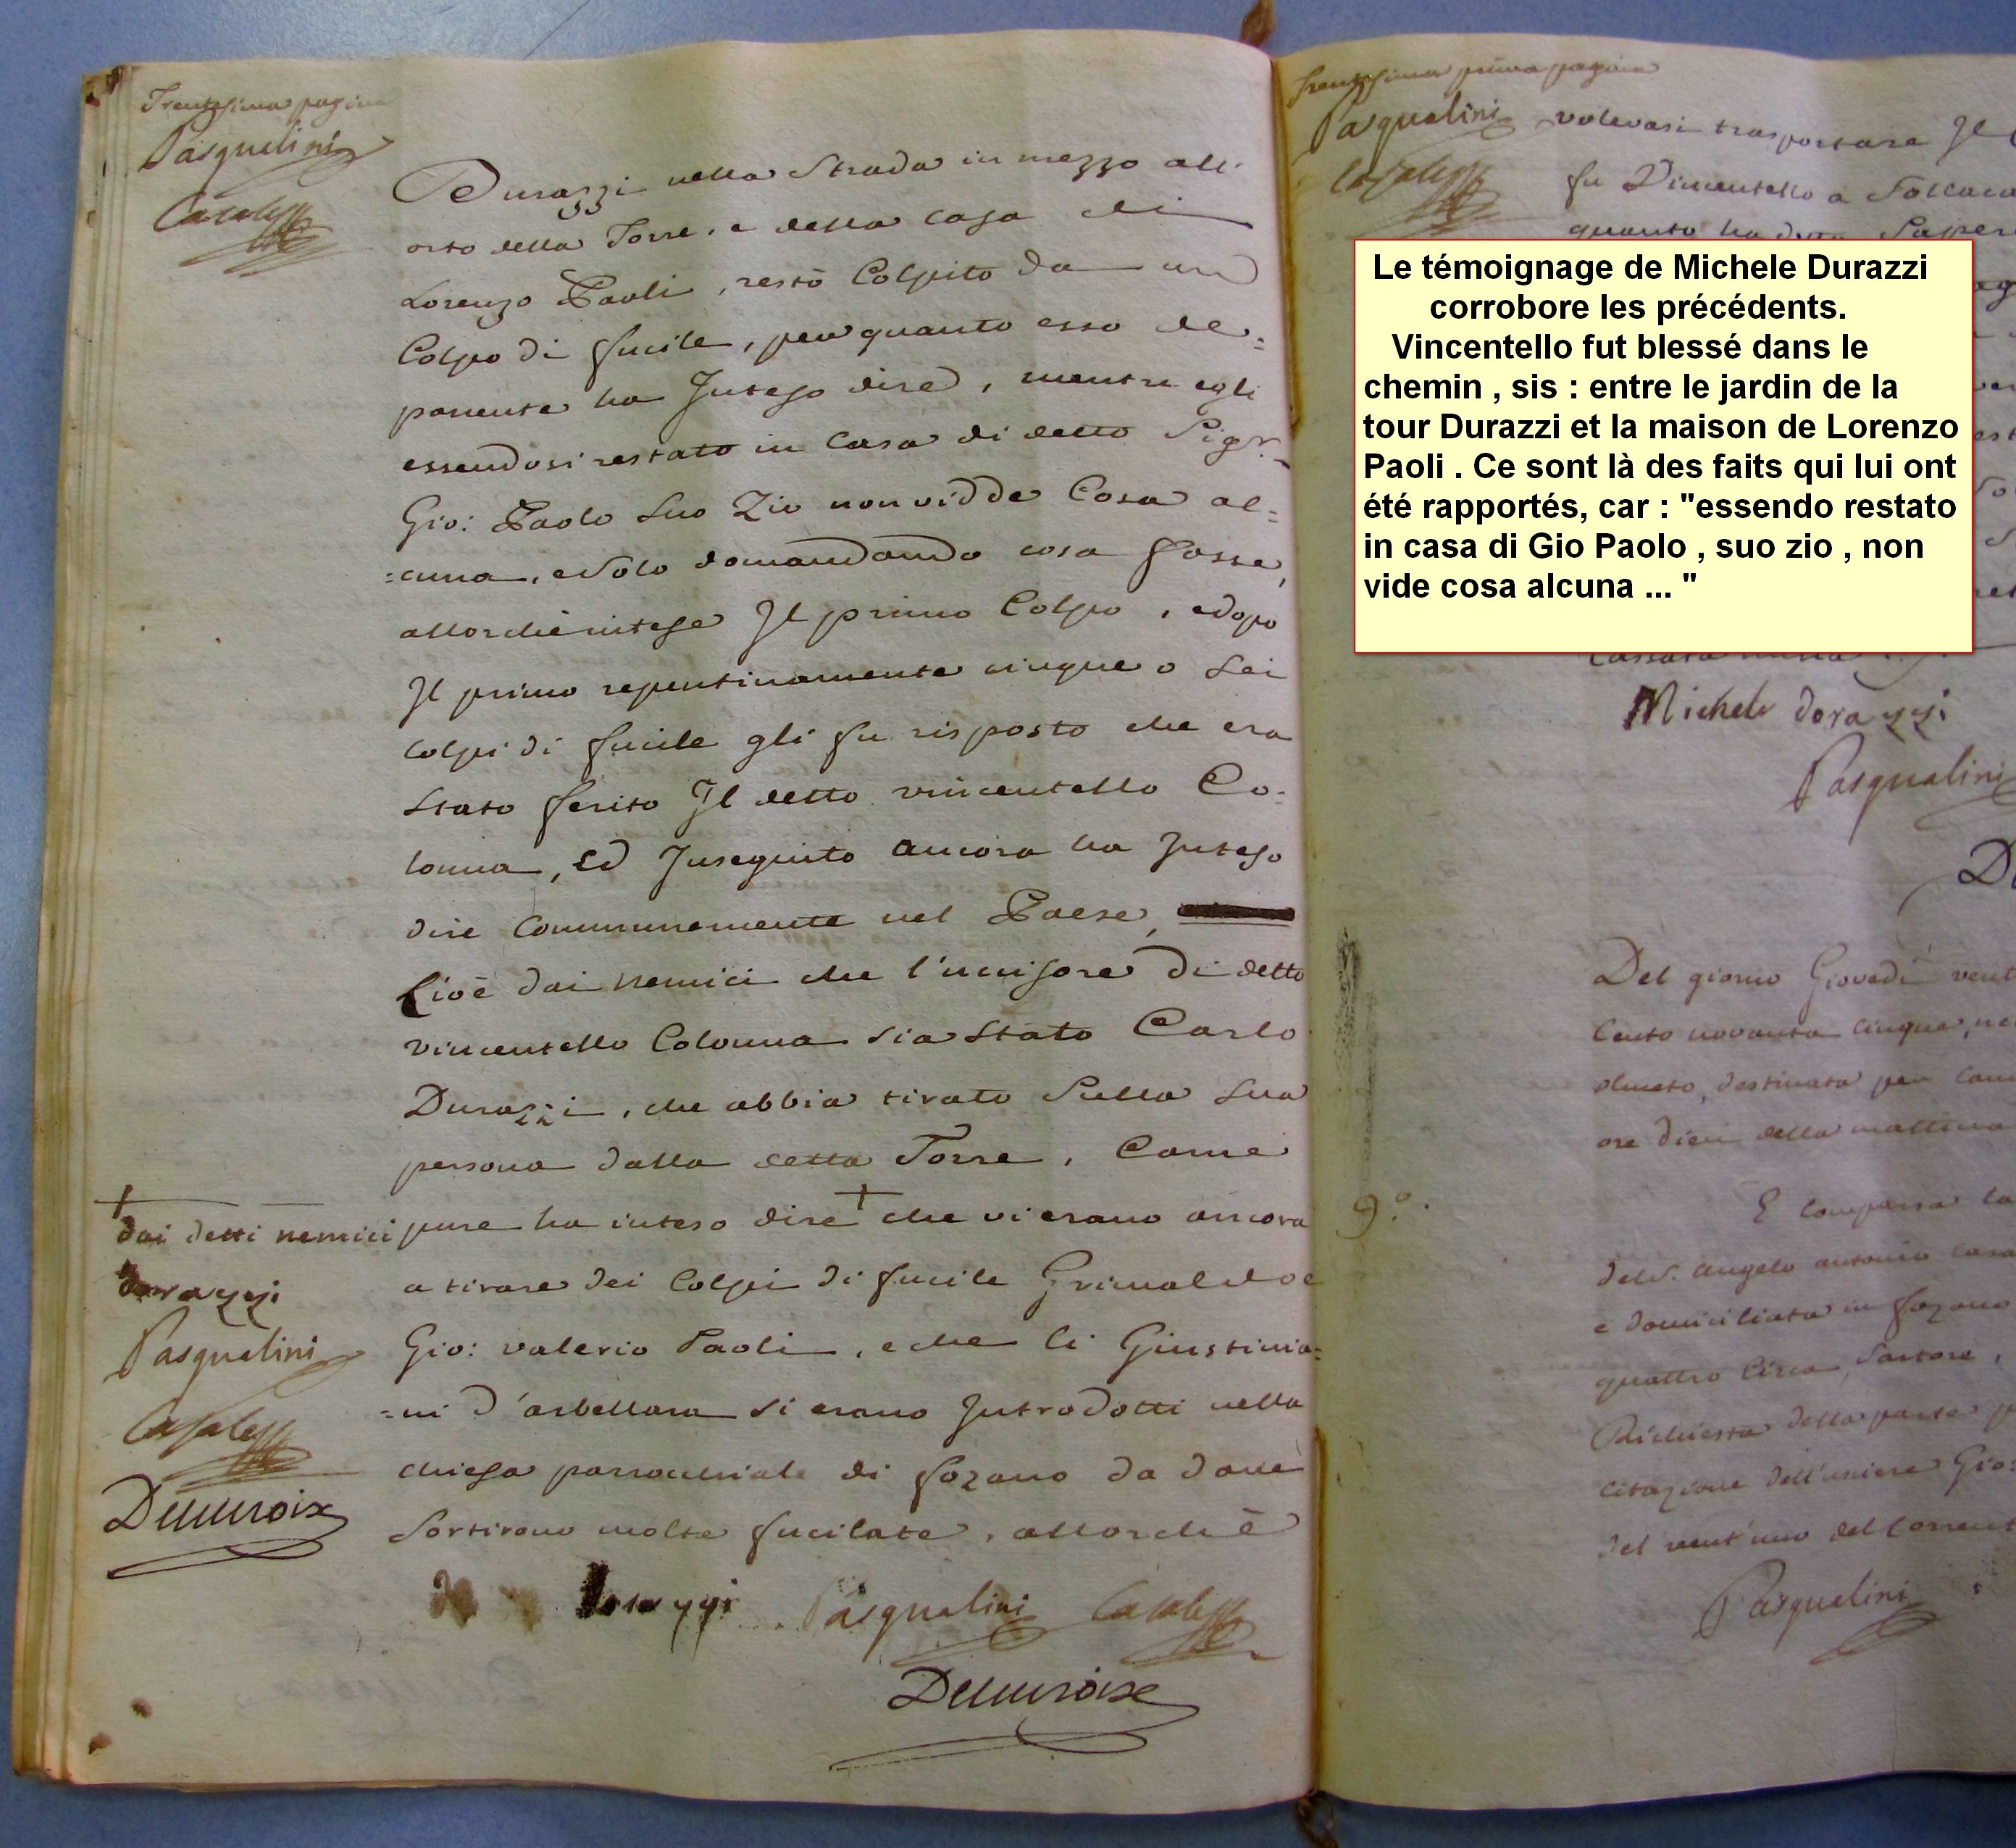 Trentesima pagina
Pasqualini
Casalta
Durazzi nella Strada in mezzo all'
orto della Torre, e della Casa di
Lorenzo Paoli, restò Colpito da un
Colpo di fucile, per quanto esso de=
ponente ha Inteso dire, mentre egli
essendosi restato in Casa di detto Sigr.
Gio: Paolo Suo Zio non vidde Cosa al=
=cuna, e Solo domandando cosa fosse,
allorchè intese Il primo Colpo, e dopo
Il primo repentinamente cinque o Sei
colpi di fucile gli fu risposto che era
Stato ferito Il detto vincentello Co=
lonna, ed Inseguito ancora ha Inteso
dire Communemente nel Paese,
Cioè dai nemici che l'uccisore di detto
vincentello Colonna sia Stato Carlo
Durazzi, che abbia tirato Sulla Sua
persona dalla detta Torre, Come
pure ha inteso dire + che vi erano ancora
a tirare dei Colpi di fucile Grimaldo e
Gio: valerio Paoli, e che li Giustinia=
=ni d'arbellara si erano Introdotti nella
chiesa parrochiale di fozano da dove
Sortirono molte fucilate, allorchè
+
dai detti nemici
dorazzi
Pasqualini
Casalta
Delacroix
dorazzi Pasqualini Casalta
Delacroix
trentesima prima pagina
Pasqualini
Casalta
volevasi trasportare Il
fu Vincentello a Sollaca
quanto ha detto Saper
Le témoignage de Michele Durazzi
corrobore les précédents.
Vincentello fut blessé dans le
chemin , sis : entre le jardin de la
tour Durazzi et la maison de Lorenzo
Paoli . Ce sont là des faits qui lui ont
été rapportés, car : "essendo restato
in casa di Gio Paolo , suo zio , non
vide cosa alcuna ... "
Michele dorazzi
Pasqualini
Del giorno Giovedi vent
Cento novanta cinque, ne
olmeto, destinata per Cam
ore dieci della mattina
9.°
È comparsa la
del S. angelo antonio Casa
e domiciliata in fozano
quattro Circa, Sartore,
Richiesta della parte p
Citazione dell'usciere Gio:
del vent'uno del Corrent
Pasqualini